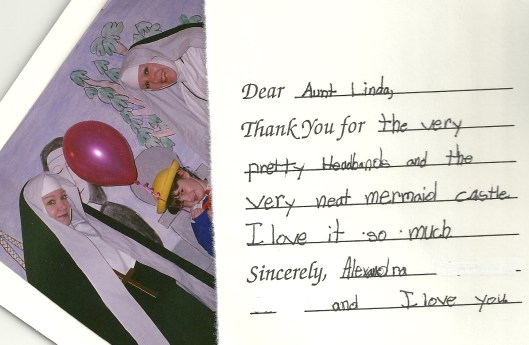 Dear Aunt Linda,
Thank You for the very
pretty Headbands and the
very neat mermaid castle
I love it so much
Sincerely, Alexandra
and I love you